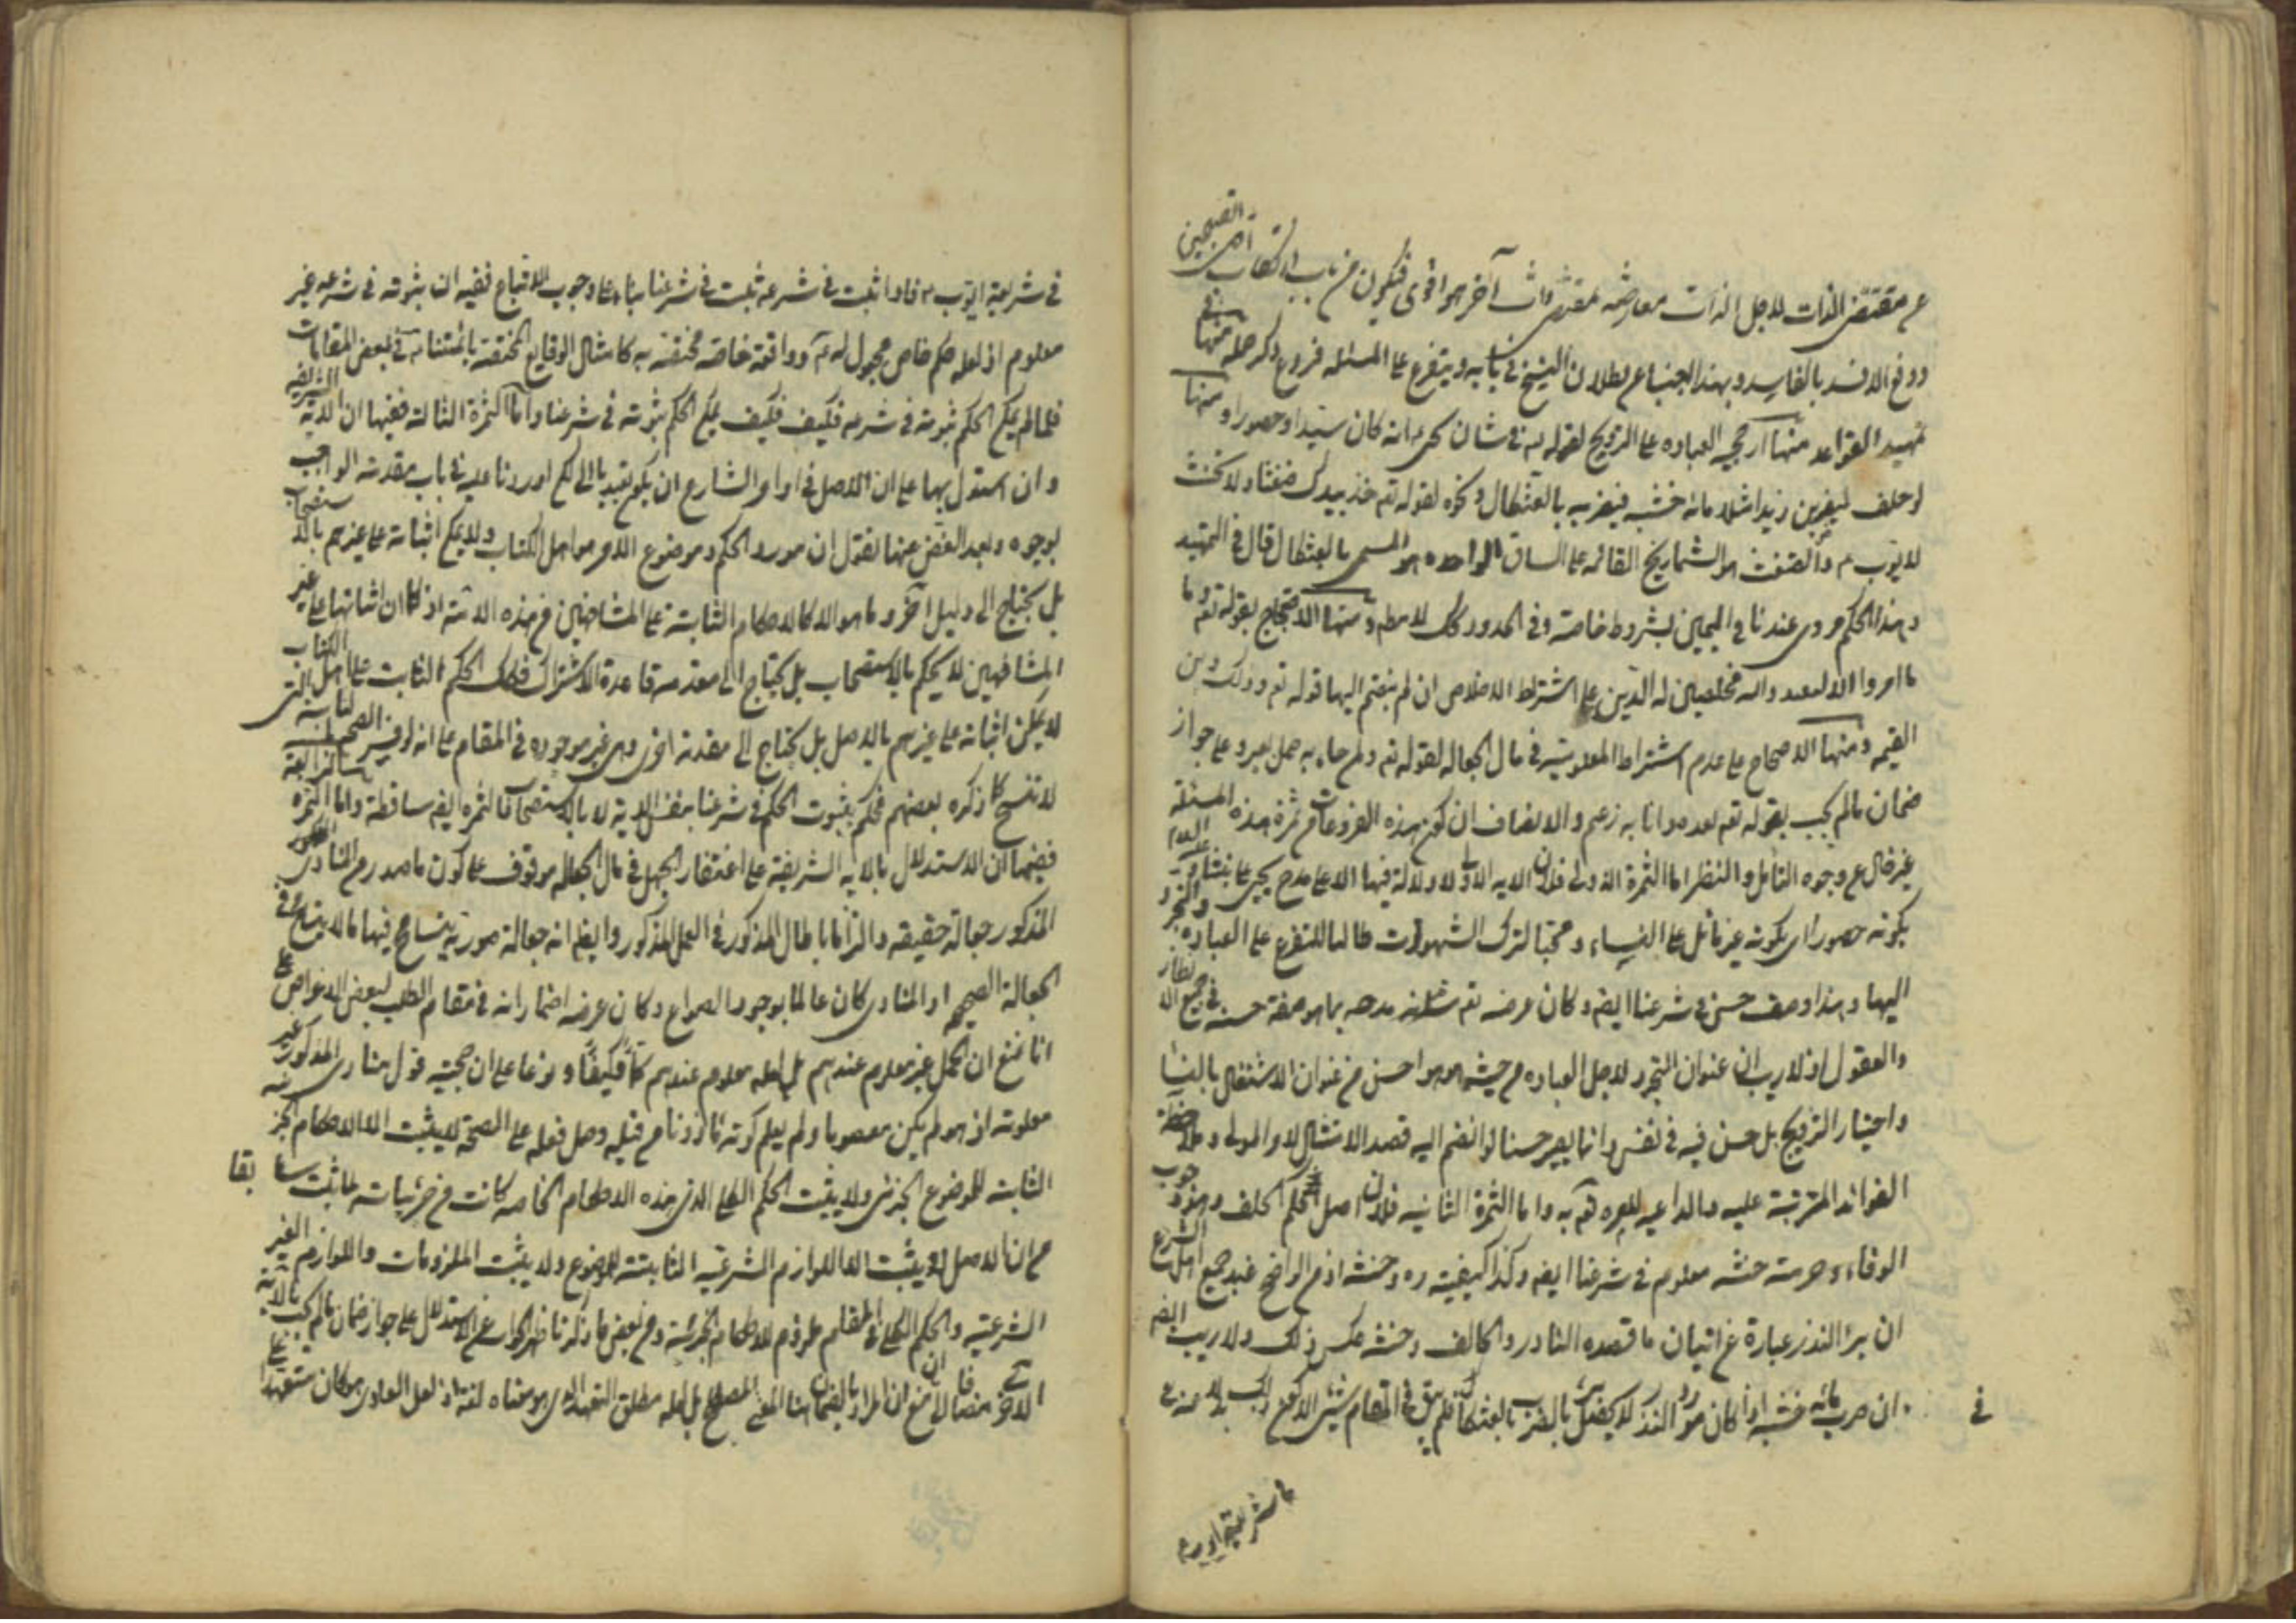 عن مقتضى الذات لاجل الذات معارضه لمقتضى ذات آخر هو اقوى فيكون من باب ارتكاب اقل القبيحين
ودفع الافسد بالفاسد وبهذا اجبنا عن بطلان النسخ في بابه ويتفرع على المسئله فروع ذكر جمله منها في
تمهيد القواعد منها ارجحيه العباده على التزويج لقوله تع في شان يحيى انه كان سيّدا وحصورا ومنها
لو حلف ليضربن زيدا مثلا مائه خشبه فيضربه بالعثكال ونحوه لقوله تع خذ بيدك ضغثا ولا تحنث
لايوب ع والضغث هو الشماريخ القائمه على الساق الواحده هو المسمى بالعثكال قال في التمهيد
وهذا الحكم مروى عندنا في اليمين بشروط خاصه وفي الحدود كك لا مطلقا ومنها الاحتجاج بقوله تع وما
امروا الا ليعبدوا الله مخلصين له الدّين على اشتراط الاخلاص ان لم ينضم اليها قوله تع وذلك دين
القيمه ومنها الاحتجاج على عدم اشتراط المعلوميّه في مال الجعاله لقوله تع ولمن جاء به حمل بعير وعلى جواز
ضمان مالم يجب بقوله تع بعده وانا به زعيم والانصاف ان كون هذه الفروعات من ثمرة هذه المسئله
غير خال عن وجوه التامل والنظر اما الثمرة الاولى فلان الايه الاولى لا دلالة فيها الا على مدح يحيى على نبينا وعليه السلام
بكونه حصورا اى بكونه غير مائل على النساء ومجتنبا لترك الشهوات طالبا للتفرغ على العباده والتجرد
اليها وهذا وصف حسن في شرعنا ايضا وكان غرضه تع شانه مدحه بما هو صفة حسنه في جميع الانظار
والعقول اذ لا ريب ان عنوان التجرد لاجل العباده من حيث هو هو احسن من عنوان الاشتغال بالنساء
واختيار التزويج بل حسن فيه في نفسه وانما يصير حسنا لو انضم اليه قصد الامتثال لامر المولى وملاحظة
الفوائد المترتبة عليه والداعيه للامر به واما الثمرة الثانيه فلان اصل حكم الحلف ووجوب
الوفاء وحرمته حنثه معلوم في شرعنا ايضا وكذا كيفيته بره وحنثه اذ من الواضح عند جميع اهل الشرع
ان برء النذر عبارة عن اتيان ما قصده الناذر والحالف وحنثه عكس ذلك ولا ريب ايضا
ان ضرب مائه خشبه اذا كان مورد النذر لا يحصل بالضرب بالعثكال فلم يبق في المقام شئ الا وقوع ذلك
في
في شريعة ايوب ع فاذا ثبت في شرعه ثبت في شرعنا بناء على وجوب الاتباع ففيه ان ثبوته في شرعه غير
معلوم اذ لعله حكم خاص مجعول له ع وواقعة خاصه مختصه به كامثال الوقايع المختصه بائمتنا ع في بعض المقامات
فلما لم يكن الحكم ثبوته في شرعه فكيف فكيف يمكن الحكم بثبوته في شرعنا واما الثمرة الثالثة ففيها ان الايه الشريفه
وان استدل بها على ان الاصل في اوامر الشارع ان يكون تعبديا الا لكن اوردنا عليه في باب مقدمه الواجب
بوجوه وبعد الغض عنها نقول ان مورد الحكم وموضوع الامر هو اهل الكتاب ولا يمكن اثباته على غيرهم بالاستصحاب
بل يحتاج الى دليل آخر وما هو الا كالاحكام الثابتة على المشافهين من هذه الامّه اذ كما ان اثباتها على غير
المشافهين لا يحكم بالاستصحاب بل يحتاج الى مقدمه قاعدة الاشتراك فكك الحكم الثابت على اهل الكتاب
لا يمكن اثباته على غيرهم بالاصل بل يحتاج الى مقدمة اخرى وهى غير موجوده في المقام على انه لو فسر القيمه بالتى
لا تنسخ كما ذكره بعضهم فحكم بثبوت الحكم في شرعنا بنفس الاية لا بالاستصحاب فالثمره ايضا ساقطة واما الثمره الرابعة
ففيها ان الاستدلال بالايه الشريفة على اغتفار الجهل في مال الجعاله موقوف على كون ما صدر من المنادى
المذكور جعالة حقيقه والتزاما بالمال المذكور في العمل المذكور وايضا انه جعالة صوريه يتسامح فيها ما لا يتسامح في
الجعالة الصحيحه او المنادى كان عالما بوجود الصواع وكان غرضه اضماراته في مقام الطلب لبعض الاغراض على
انا نمنع ان الحمل غير معلوم عندهم بل لعله معلوم عندهم كمّاً وكيفاً ونوعا على ان حجيّه قول منادى المذكور غير
معلومه اذ هو لم يكن معصوما ولم يعلم كونه ماذونا من قبله وحمل فعله على الصحة لا يثبت الا الاحكام الجزئيه
الثابته للموضوع الجزئى ولا يثبت الحكم الكلى الذى هذه الاحكام الخاصه كانت من جزئياته لما ثبت سابقا
من ان الاصل لا يثبت الا اللوازم الشرعيّه الثابتة للموضوع ولا يثبت الملزومات واللوازم الغير
الشرعيّه والحكم الكلى في المقام ملزوم للاحكام الجزئيه ومن بعض ما ذكرنا ظهر الجواب عن الاستدلال على جواز ضمان مالم يجب بالآية
مضافا الى منع ان المراد بالضمان هنا المعنى المصطلح بل لعله مطلق التعهد الذى هو معناه لغة اذ لعل المنادى هو كان متعهدا